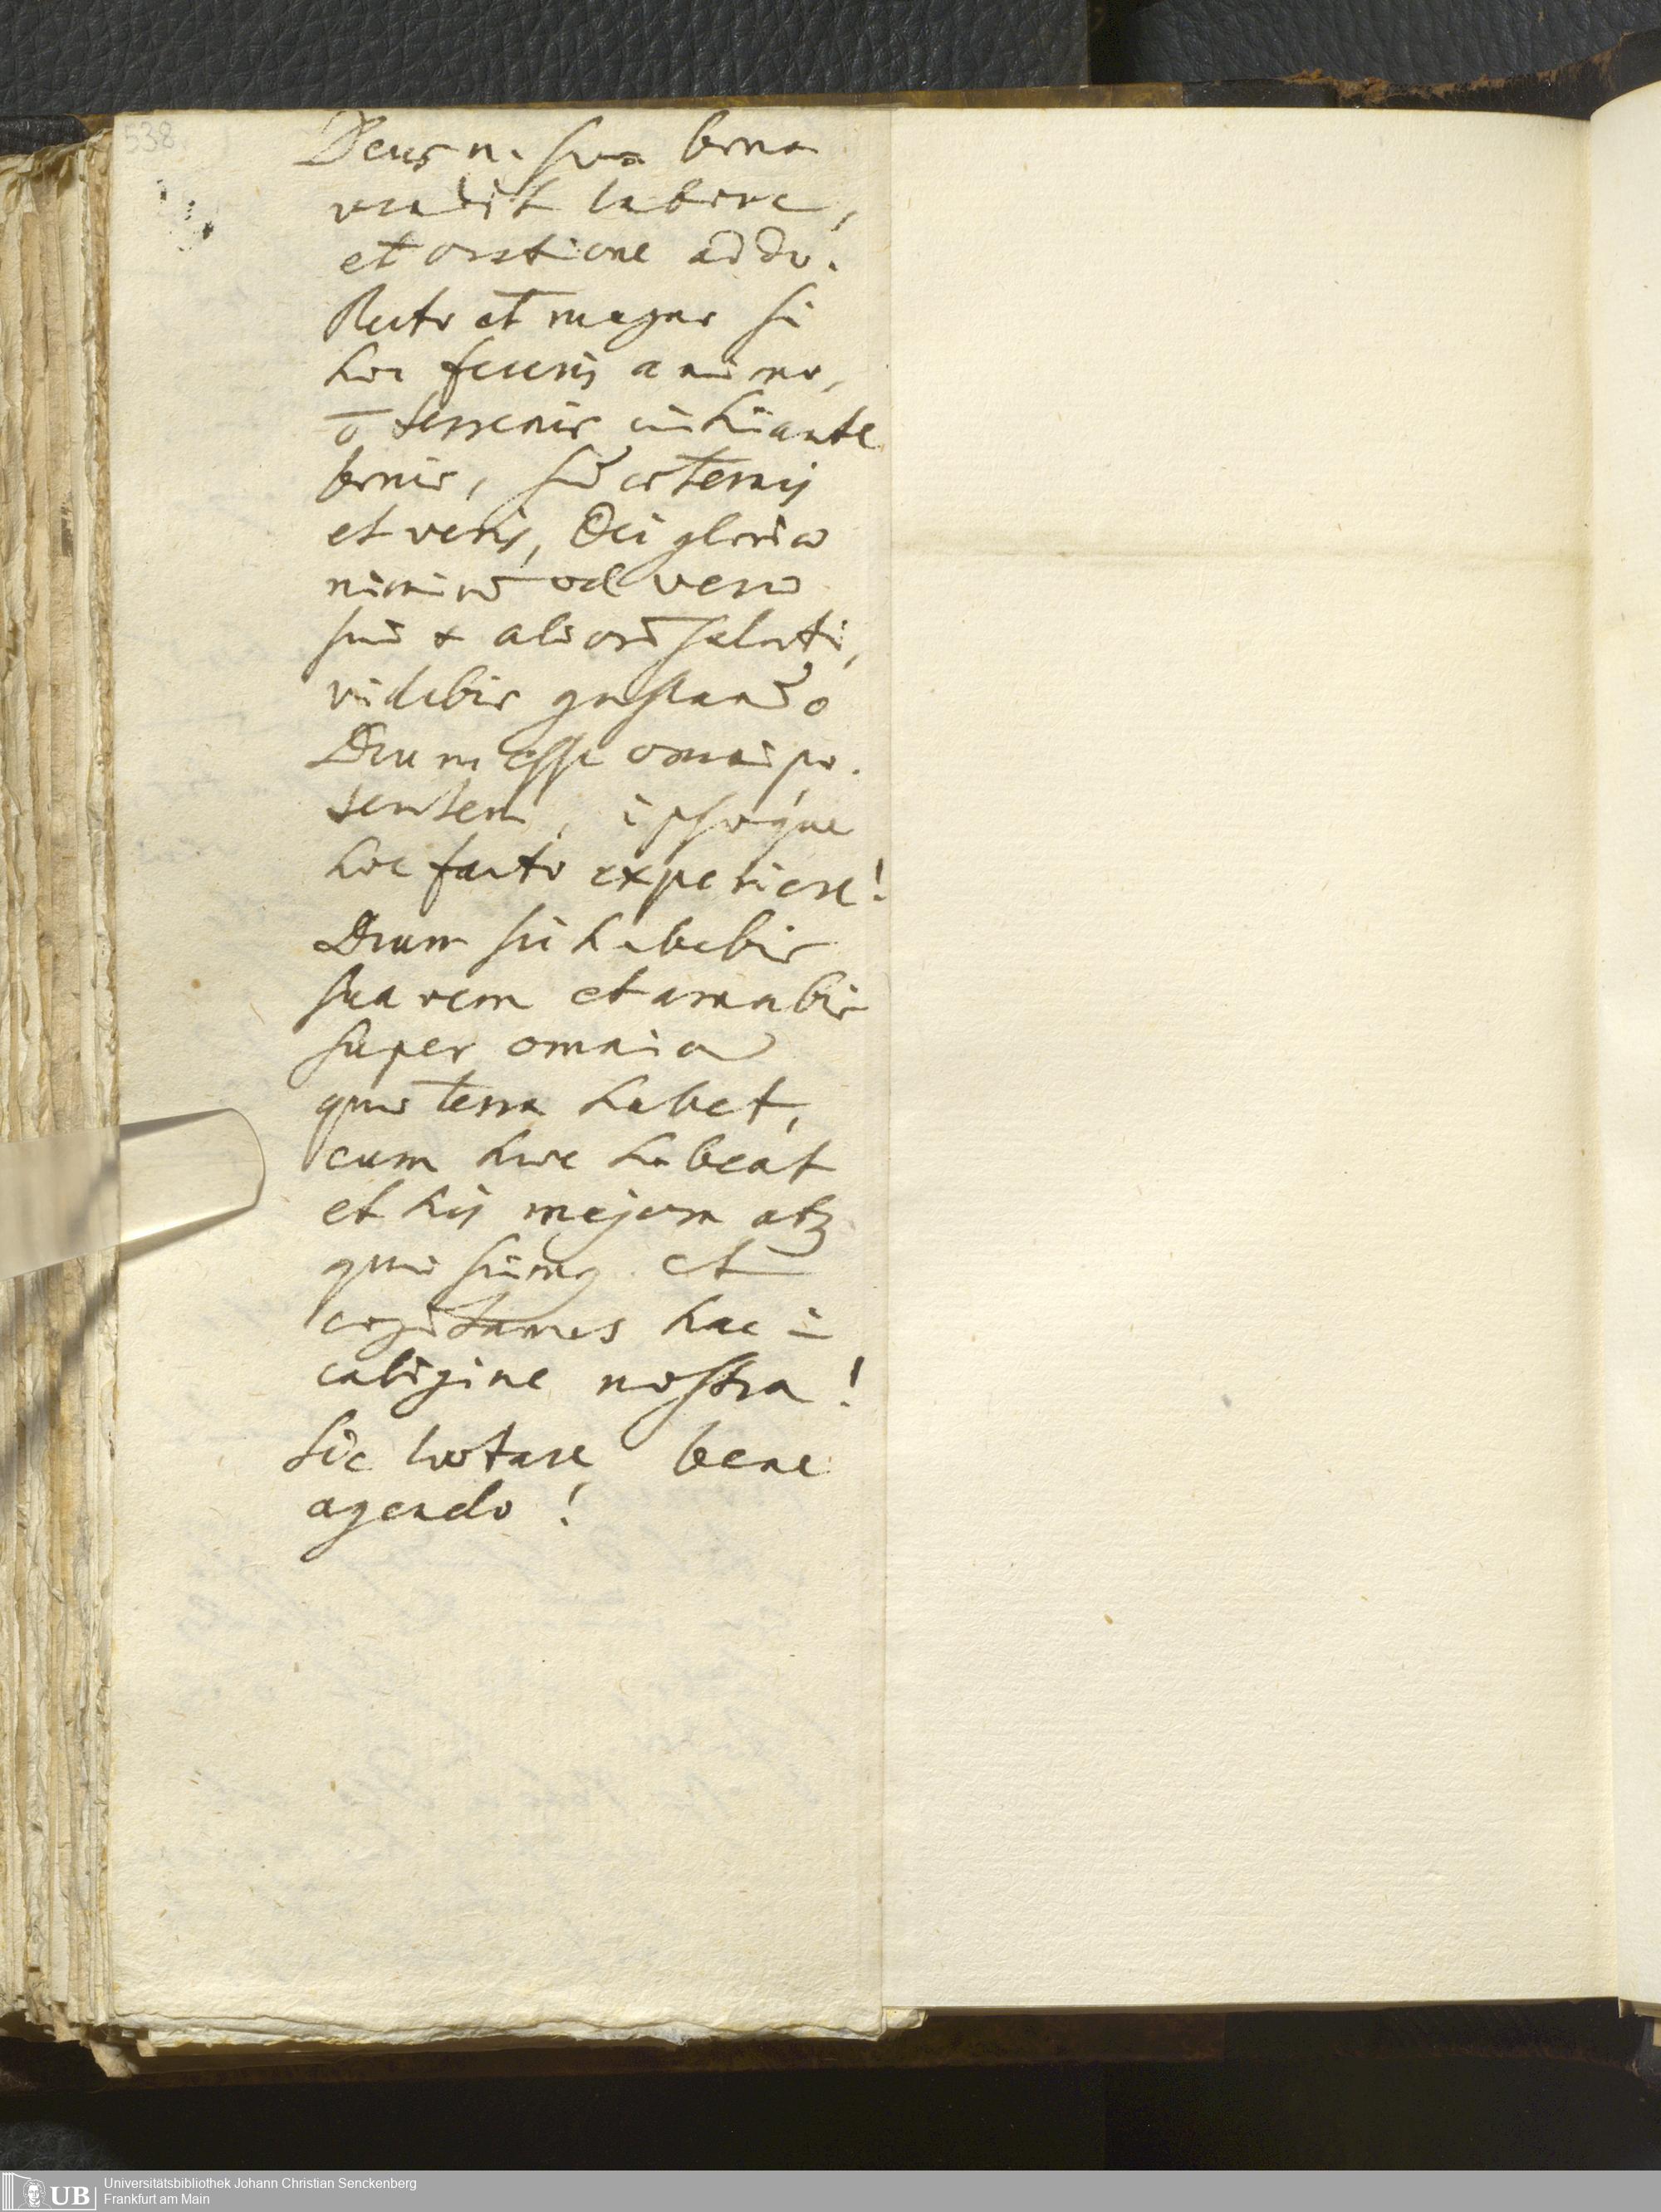 538
Deus n. sua bona
vendit labore,
et oratione addo.
Recto et magno si
hoc feceris animo,
ō terrenis inhiante
bonis, sed aeternis
et veris, Dei gloriae
nimirū vel verae
suae & aliorū saluti,
videbis gustando
Deum esse omnipo.
tentem, ipsoque
hoc facto experiere!
Deum sic habebis
suavem et amabis
super omnia
quae terra habet,
cum hoc habeat
et his majora atq
quae sumus et
cogitamus hac ī
caligine nostra!
Sic laetare bene
agendo!
UB Universitätsbibliothek Johann Christian Senckenberg
Frankfurt am Main